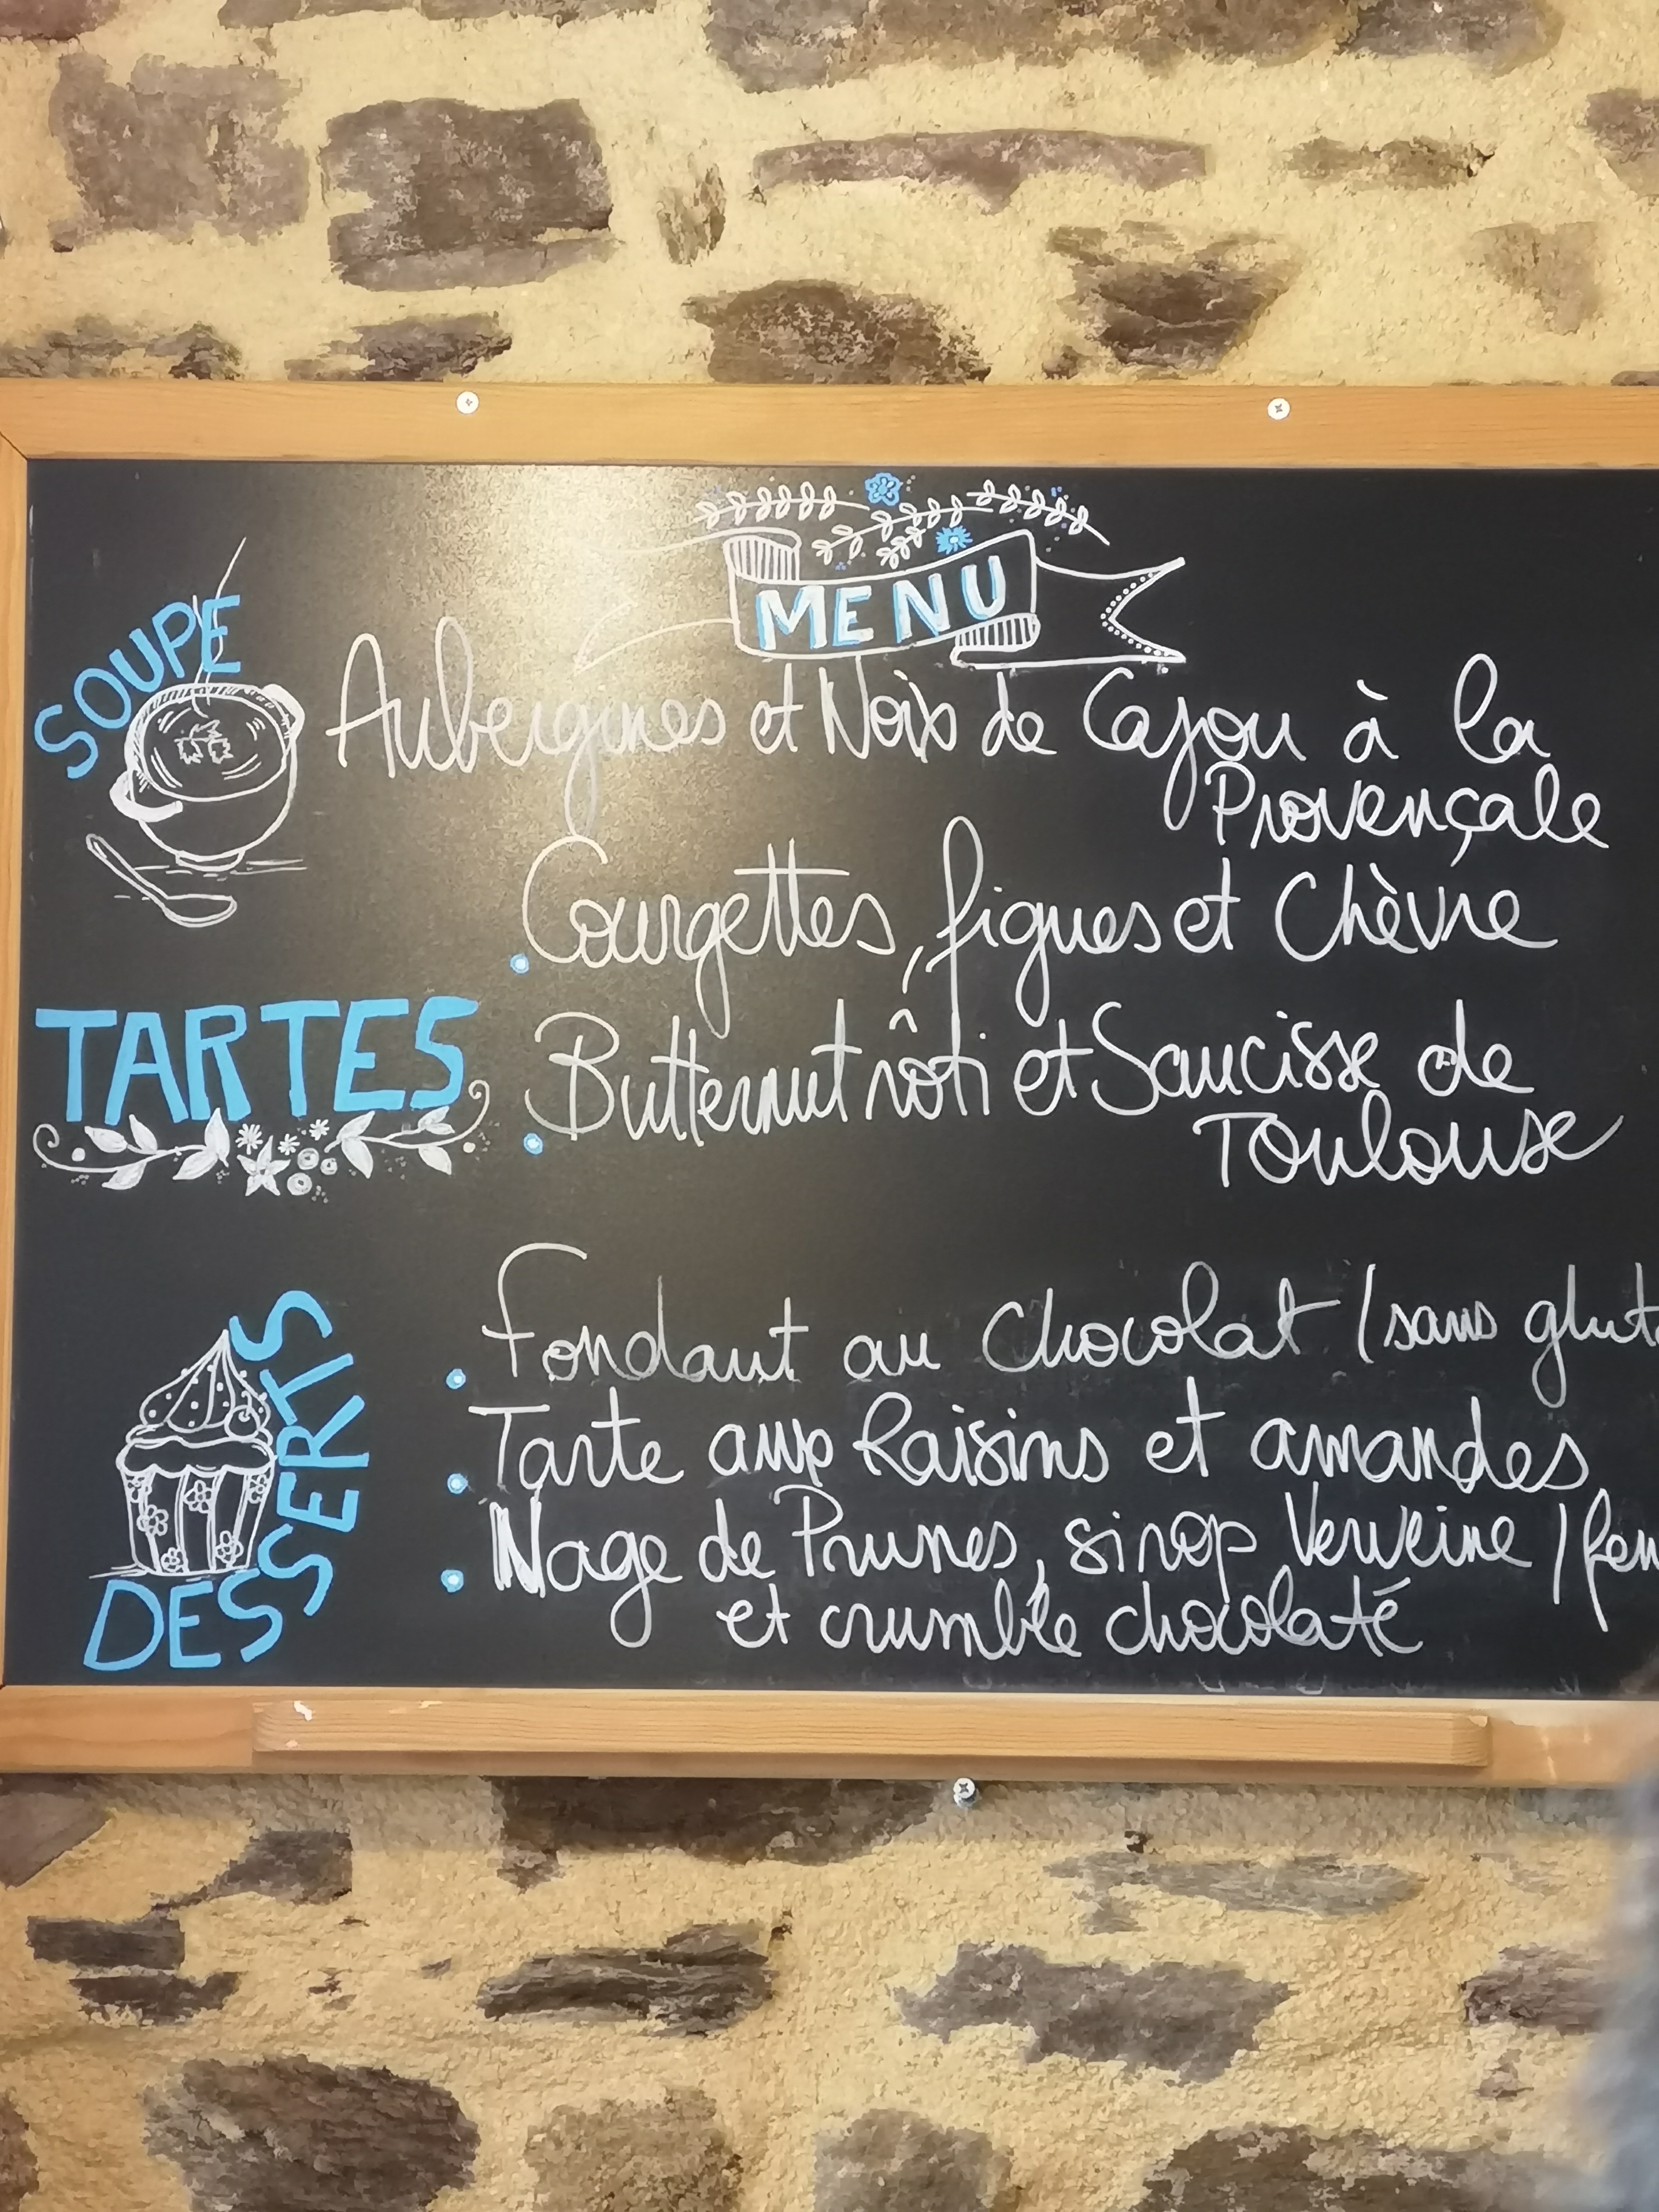 MENU
SOUPE
Aubergines et Noix de Cajou à la
Provençale
TARTES
. Courgettes, figues et Chèvre
. Butternut rôti et Saucisse de
Toulouse
DESSERTS
. Fondant au Chocolat (sans
. Tarte aux Raisins et amandes
. Nage de Prunes, sirop Verveine /
et crumble chocolaté